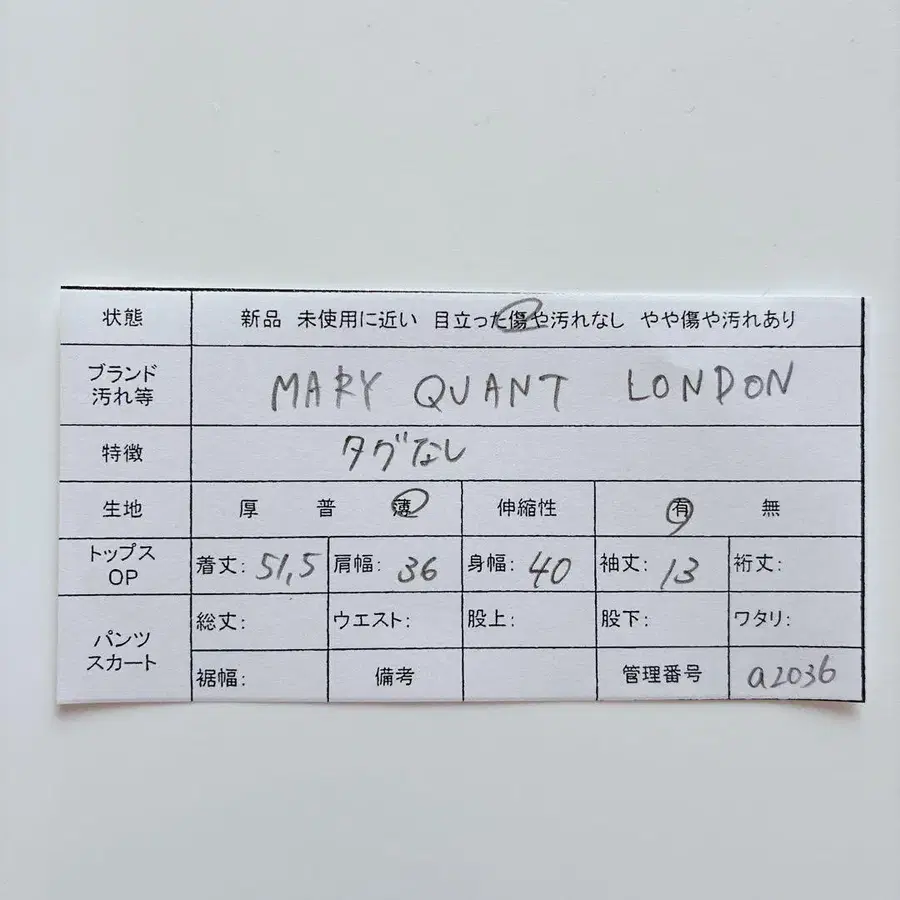 状態 新品 未使用に近い 目立った傷や汚れなし やや傷や汚れあり
ブランド
汚れ等 MARY QUANT LONDON
特徴 タグなし
生地 厚 普 薄 伸縮性 有 無
トップス
OP 着丈: 51,5 肩幅: 36 身幅: 40 袖丈: 13 裄丈:
パンツ
スカート 総丈: ウエスト: 股上: 股下: ワタリ:
裾幅: 備考 管理番号 a2036